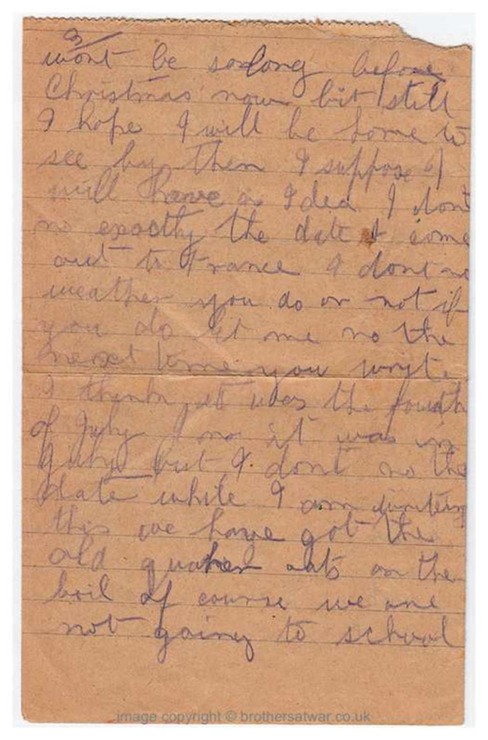 3
wont be so long before
Christmas now but still
I hope I will be home to
see by then I suppose I
will have a Idea I dont
no exactly the date I come
out to France I dont no
weather you do or not if
you do let me no the
next time you wryte
I think it was the fourth
of July I no it was in
July but I dont no the
date while I am writing
this we have got the
old quaker oats on the
boil of course we are
not going to school
image copyright © brothersatwar.co.uk